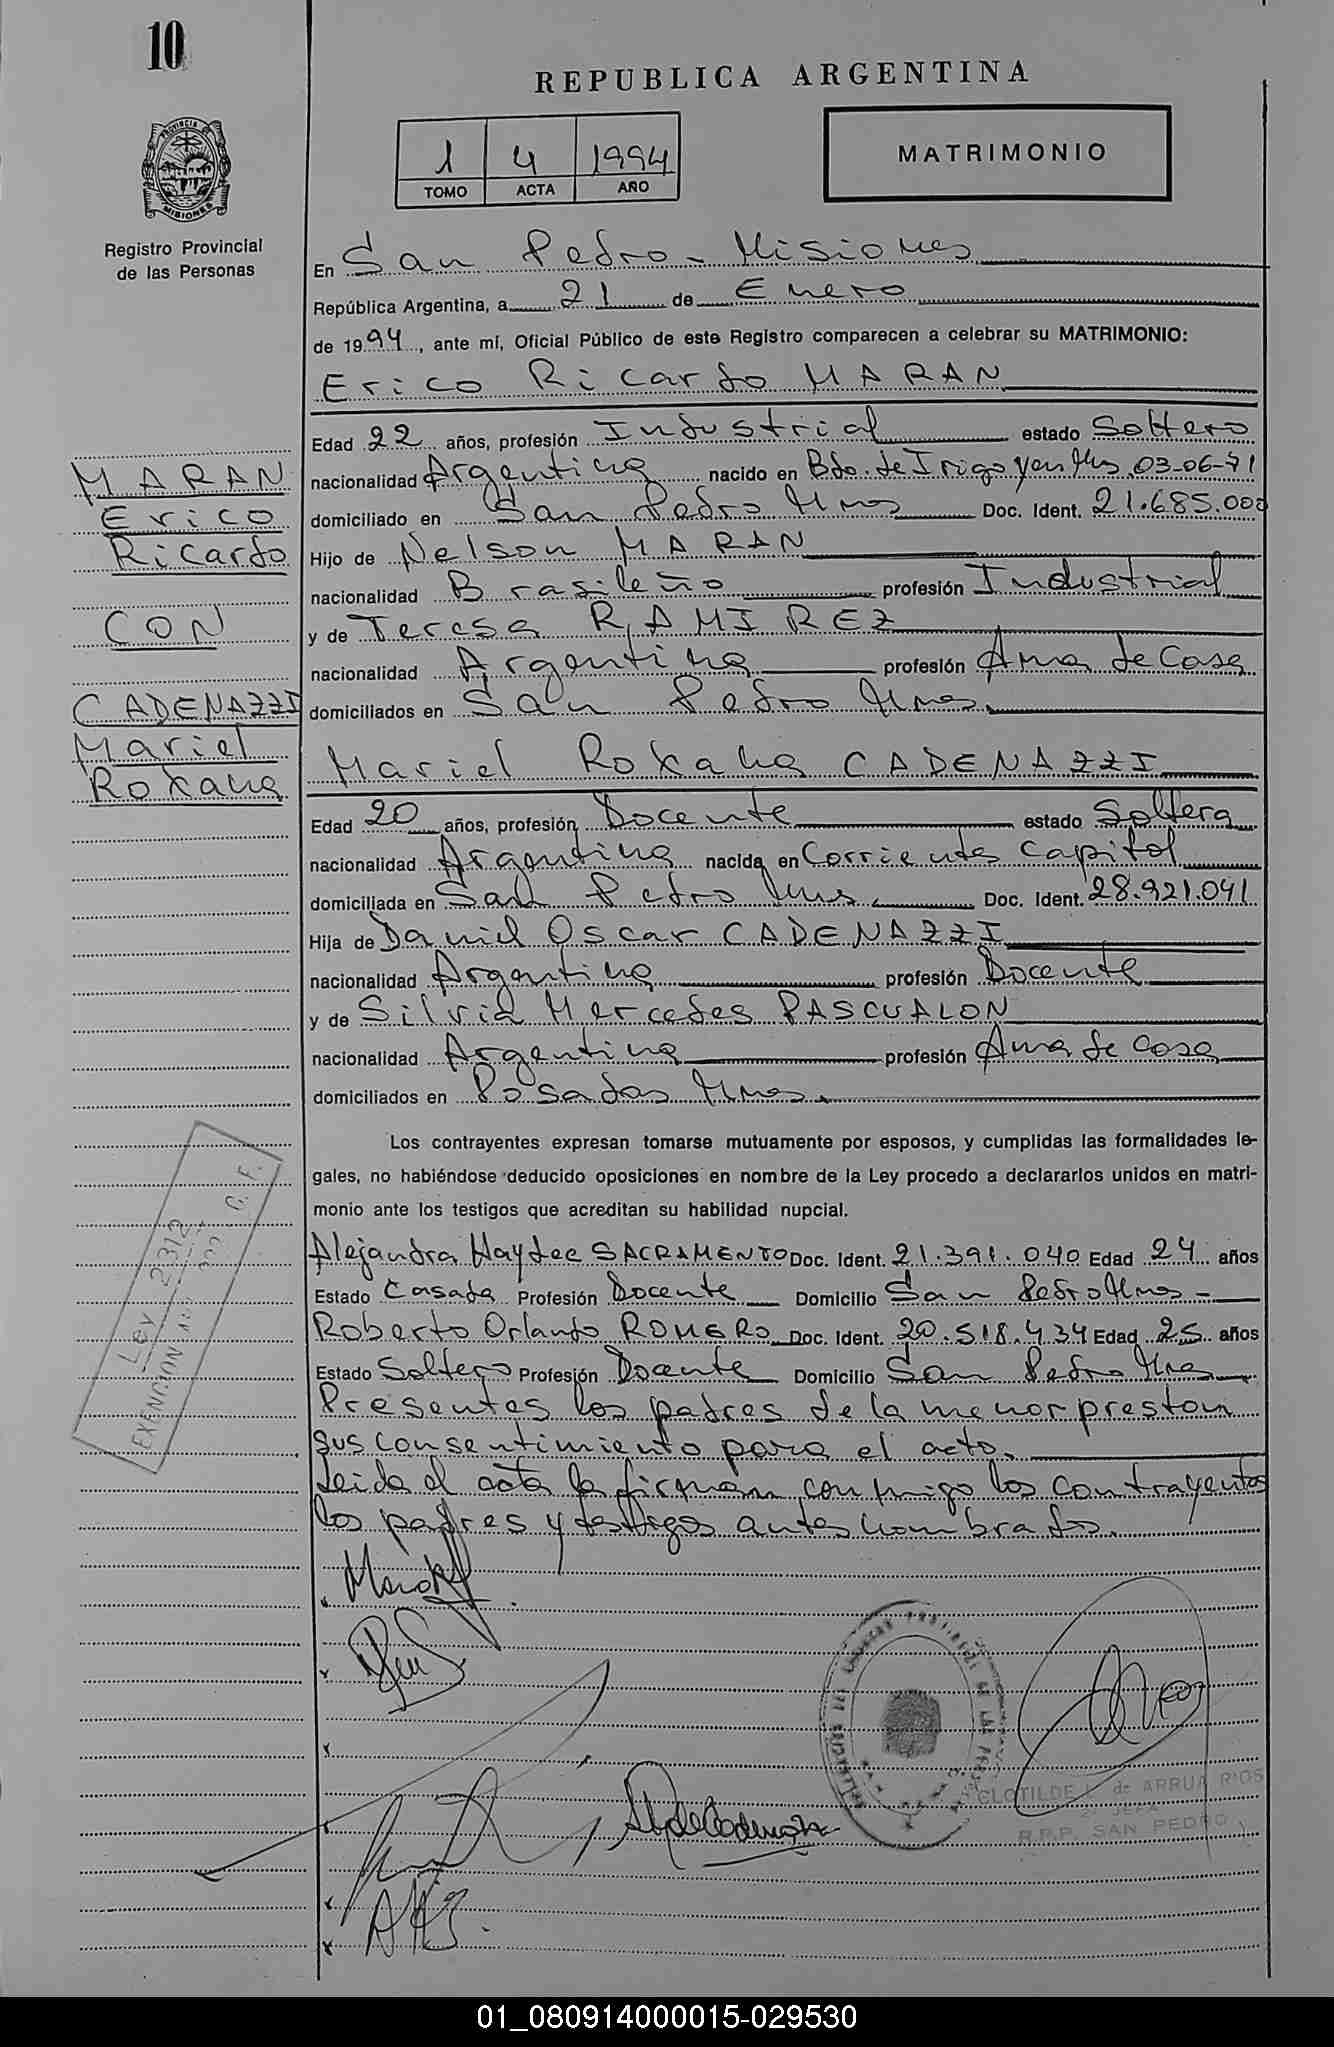 10
REPUBLICA ARGENTINA
1 4 1994
TOMO ACTA AÑO
MATRIMONIO
PROVINCIA DE MISIONES
Registro Provincial
de las Personas
En San Pedro - Misiones
República Argentina, a 21 de Enero
de 1994, ante mí, Oficial Público de este Registro comparecen a celebrar su MATRIMONIO:
Erico Ricardo MARAN
Edad 22 años, profesión Industrial estado Soltero
nacionalidad Argentina nacido en Bdo. de Irigoyen Mns 03-06-71
domiciliado en San Pedro Mnes Doc. Ident. 21.685.000
Hijo de Nelson MARAN
nacionalidad Brasileño profesión Industrial
y de Teresa RAMIREZ
nacionalidad Argentina profesión Ama de Casa
domiciliados en San Pedro Mnes.
MARAN
Erico
Ricardo
CON
CADENAZZI
Mariel
Roxana
Mariel Roxana CADENAZZI
Edad 20 años, profesión Docente estado Soltera
nacionalidad Argentina nacida en Corrientes Capital
domiciliada en San Pedro Mns. Doc. Ident. 28.921.041
Hija de Daniel Oscar CADENAZZI
nacionalidad Argentina profesión Docente
y de Silvia Mercedes PASCUALON
nacionalidad Argentina profesión Ama de casa
domiciliados en Posadas Mnes.
Los contrayentes expresan tomarse mutuamente por esposos, y cumplidas las formalidades le-
gales, no habiéndose deducido oposiciones en nombre de la Ley procedo a declararlos unidos en matri-
monio ante los testigos que acreditan su habilidad nupcial.
Alejandra Haydee SACRAMENTO Doc. Ident. 21.391.040 Edad 24 años
Estado Casada Profesión Docente Domicilio San Pedro Mnes -
Roberto Orlando ROMERO Doc. Ident. 20.518.434 Edad 25 años
Estado Soltero Profesión Docente Domicilio San Pedro Mns
Presentes los padres de la menor prestan
sus consentimiento para el acto.
Leida el acta la firman conmigo los contrayentes
los padres y testigos antes nombrados.
Ley 2312
EXENCION
CLOTILDE L. de ARRUA RIOS
2º JEFA
R.P.P. SAN PEDRO
01_080914000015-029530